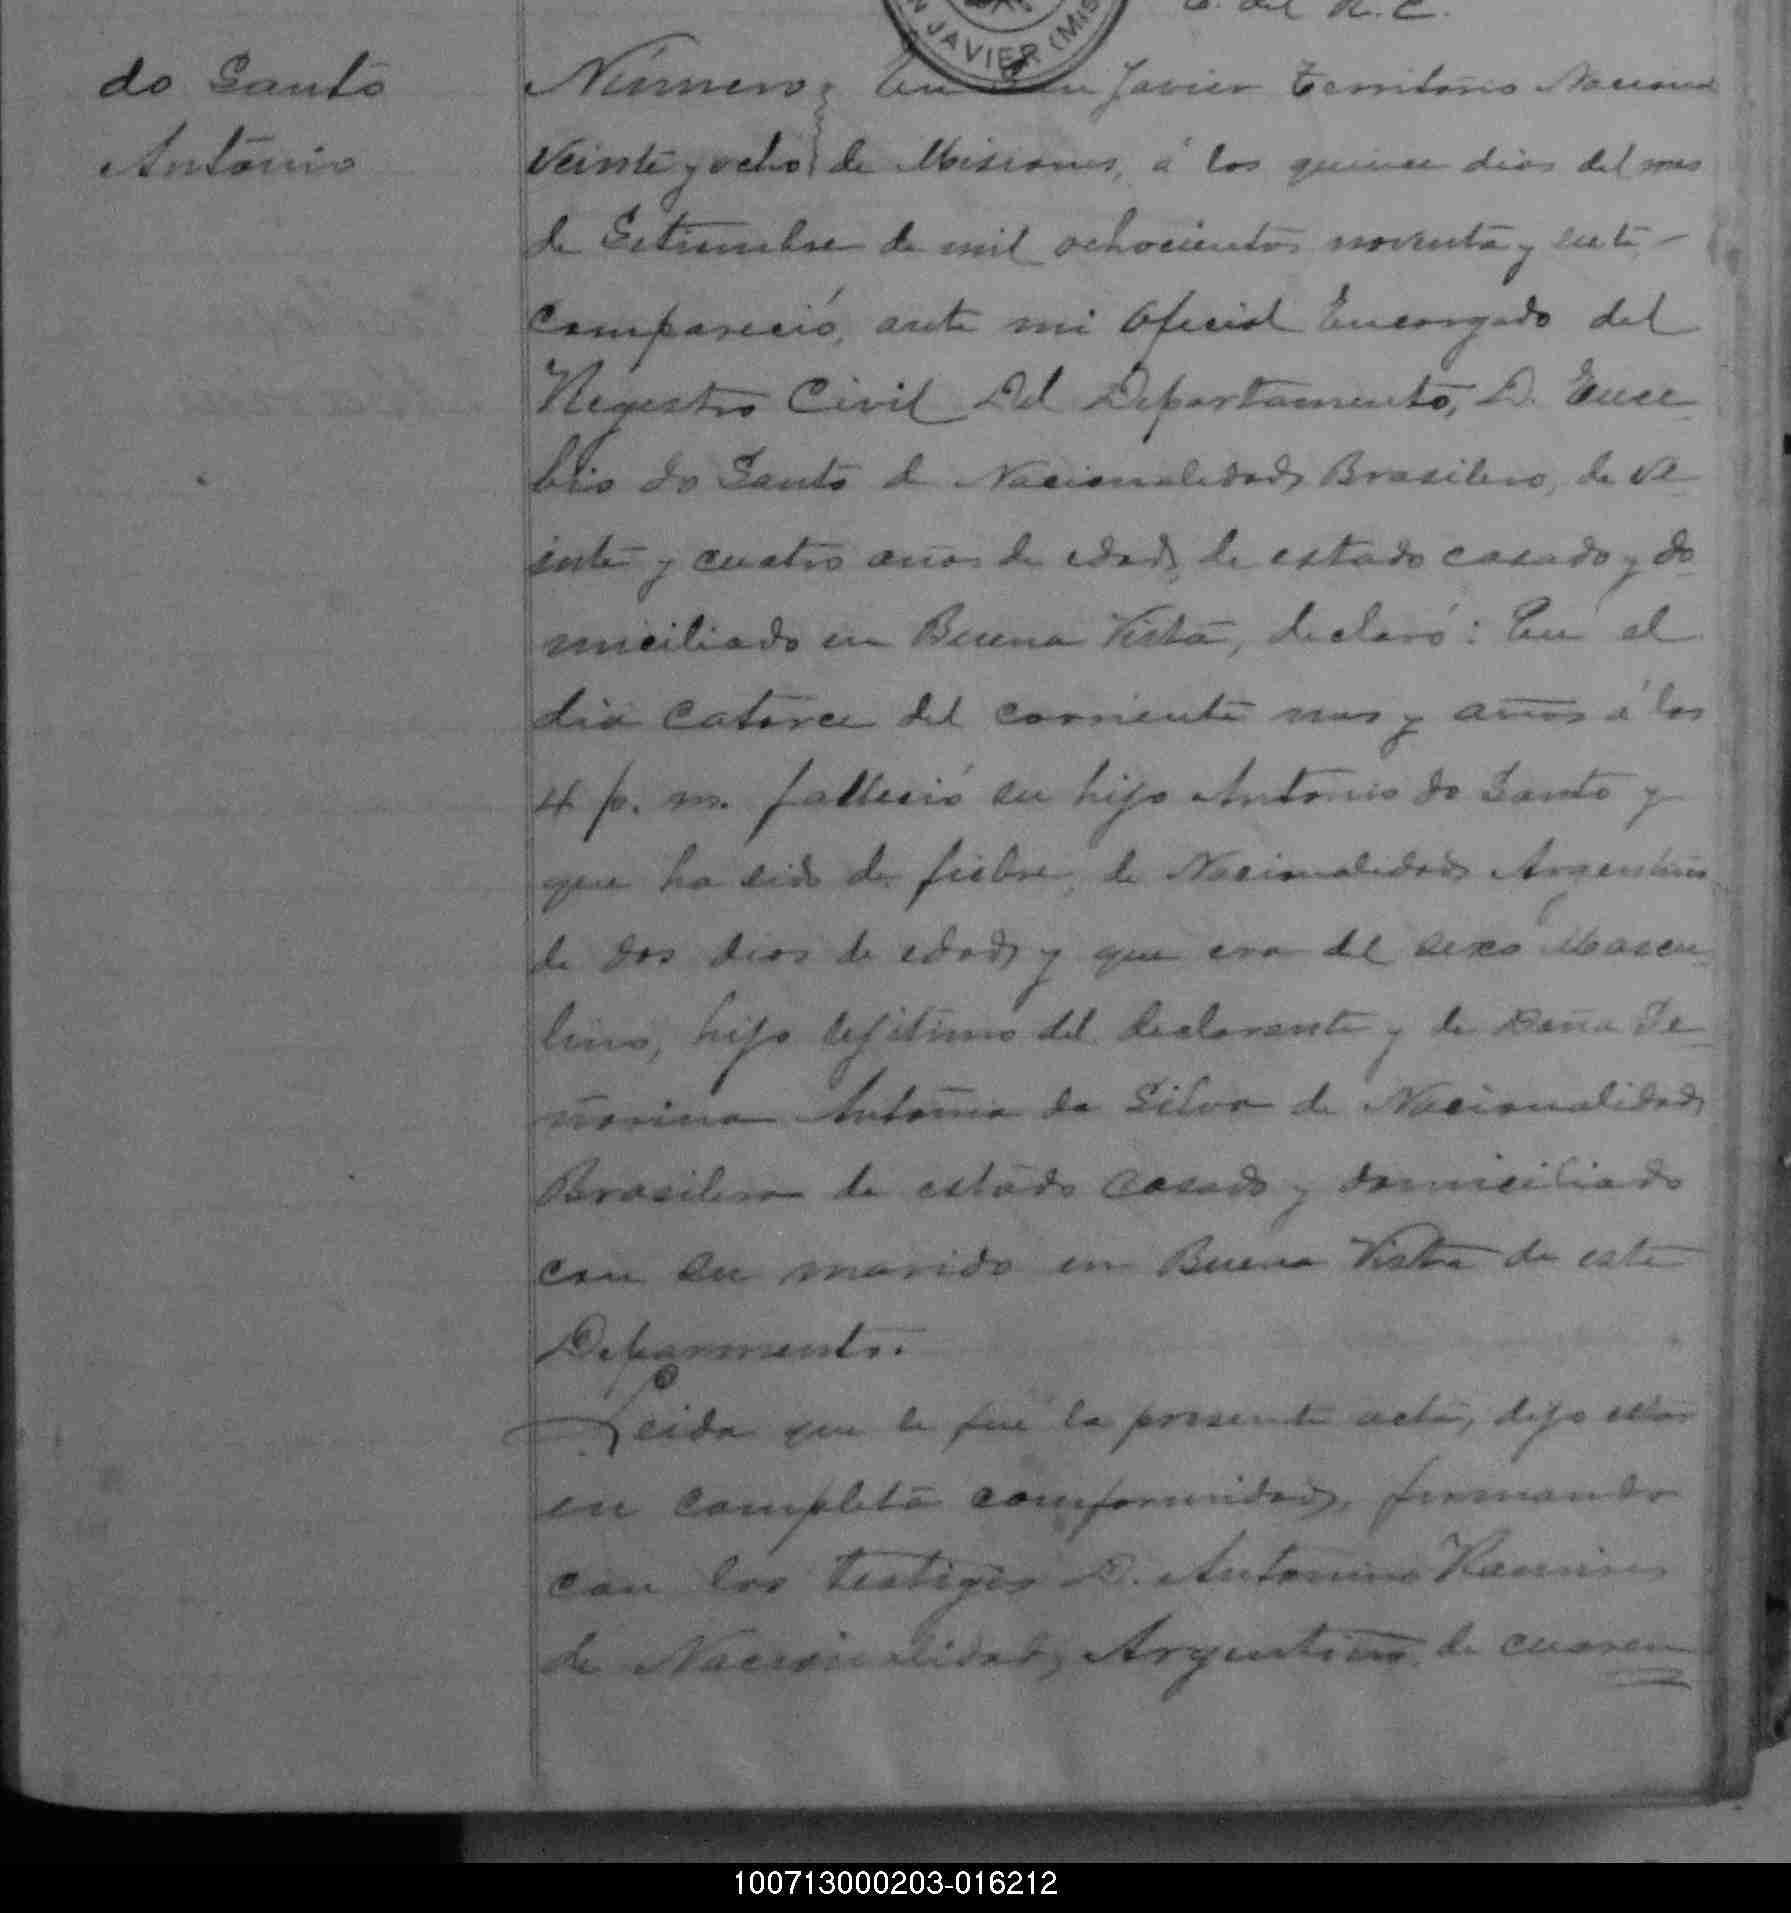 C. del R. C.
N JAVIER (MIS
do Santo
Antonio
Número En San Javier Territorio Nacional
Veinte y ocho de Misiones, á los quince dias del mes
de Setiembre de mil ochocientos noventa y siete
compareció, ante mi Oficial Encargado del
Registro Civil Del Departamento, D. Euse
bio do Santo de Nacionalidad Brasilero, de ve
inte y cuatro años de edad, de estado casado y do
miciliado en Buena Vista, declaró: En el
dia catorce del corriente mes y años á las
4 p. m. falleció su hijo Antonio do Santo y
que ha sido de fiebre, de Nacionalidad Argentino
de dos dias de edad y que era del sexo Mascu
lino, hijo lejitimo del declarante y de Doña
Antonia da Silva de Nacionalidad
Brasilera de estado casado y domiciliado
con su marido en Buena Vista de este
Deparmento.
Leida que le fue la presente acta, dijo estar
en completa comformidad, firmando
con los testigos D. Antonino Ramires
de Nacionalidad, Argentino, de cuaren
100713000203-016212